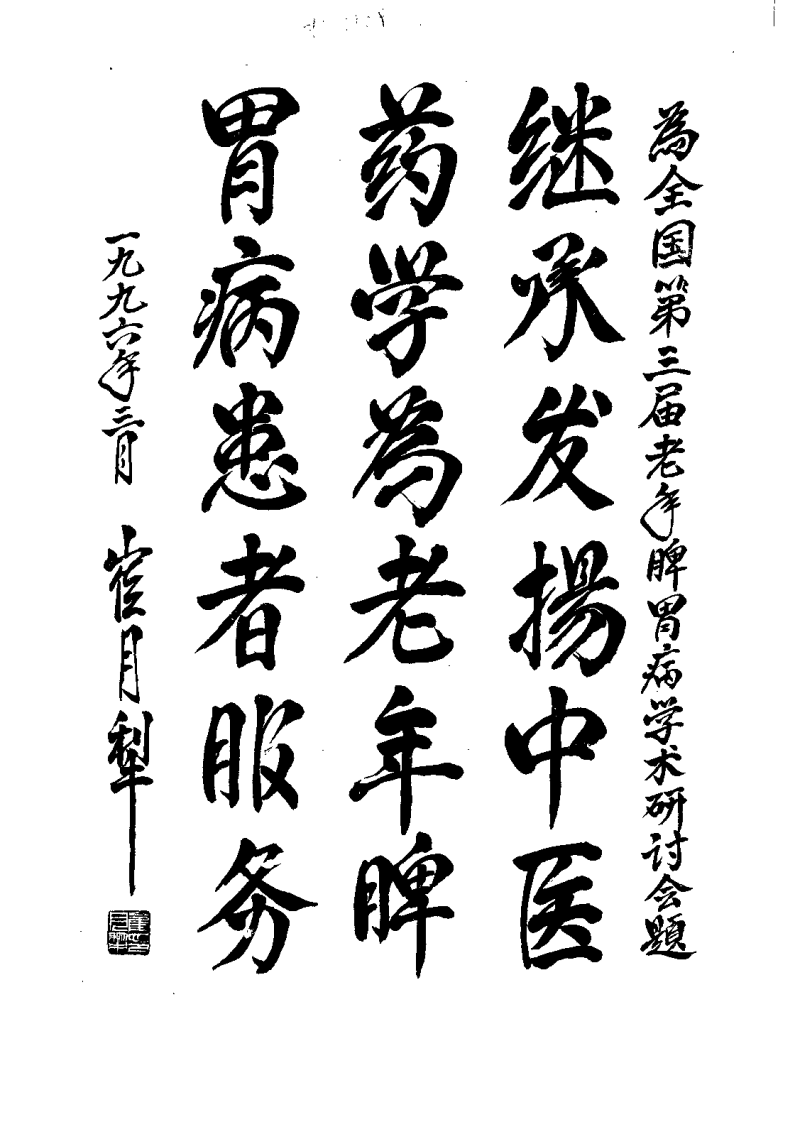 為全国第三届老年脾胃病学术研讨会题
继承发揚中医
药学為老年脾
胃病患者服务
一九九六年三月 崔月犁